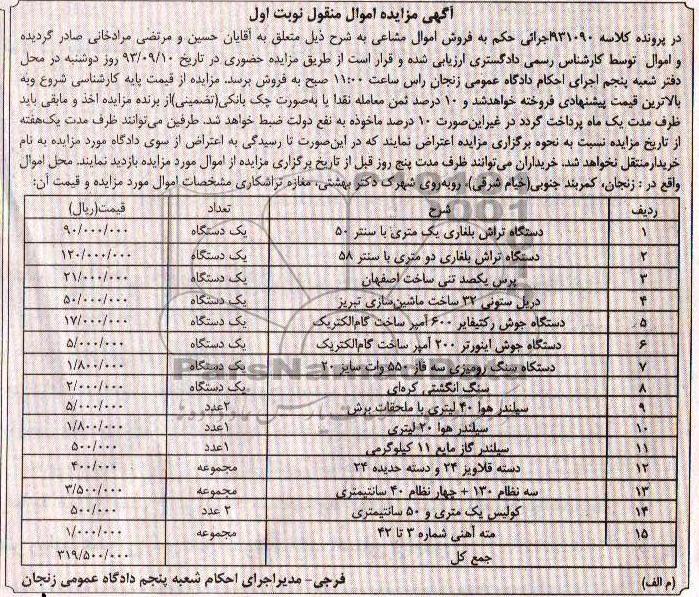 آگهی مزایده اموال منقول نوبت اول
در پرونده کلاسه ۹۳۱۰۹۰اجرائی حکم به فروش اموال مشاعی به شرح ذیل متعلق به آقایان حسین و مرتضی مرادخانی صادر گردیده
و اموال توسط کارشناس رسمی دادگستری ارزیابی شده و قرار است از طریق مزایده حضوری در تاریخ ۹۳/۰۹/۱۰ روز دوشنبه در محل
دفتر شعبه پنجم اجرای احکام دادگاه عمومی زنجان راس ساعت ۱۱:۰۰ صبح به فروش برسد. مزایده از قیمت پایه کارشناسی شروع وبه
بالاترین قیمت پیشنهادی فروخته خواهدشد و ۱۰ درصد ثمن معامله نقدا یا به‌صورت چک بانکی(تضمینی)از برنده مزایده اخذ و مابقی باید
ظرف مدت یک ماه پرداخت گردد در غیراین‌صورت ۱۰ درصد ماخوذه به نفع دولت ضبط خواهد شد. طرفین می‌توانند ظرف مدت یک‌هفته
از تاریخ مزایده نسبت به نحوه برگزاری مزایده اعتراض نمایند که در این‌صورت تا رسیدگی به اعتراض از سوی دادگاه مورد مزایده به نام
خریدارمنتقل نخواهد شد. خریداران می‌توانند ظرف مدت پنج روز قبل از تاریخ برگزاری مزایده از اموال مورد مزایده بازدید نمایند. محل اموال
واقع در : زنجان، کمربند جنوبی(خیام شرقی)، روبه‌روی شهرک دکتر بهشتی، مغازه تراشکاری مشخصات اموال مورد مزایده و قیمت آن:
ردیف شرح تعداد قیمت(ریال)
۱ دستگاه تراش بلغاری یک متری با سنتر ۵۰ یک دستگاه ۹۰/۰۰۰/۰۰۰
۲ دستگاه تراش بلغاری دو متری با سنتر ۵۸ یک دستگاه ۱۲۰/۰۰۰/۰۰۰
۳ پرس یکصد تنی ساخت اصفهان یک دستگاه ۲۱/۰۰۰/۰۰۰
۴ دریل ستونی ۳۲ ساخت ماشین‌سازی تبریز یک دستگاه ۵۰/۰۰۰/۰۰۰
۵ دستگاه جوش رکتیفایر ۶۰۰ آمپر ساخت گام‌الکتریک یک دستگاه ۱۷/۰۰۰/۰۰۰
۶ دستگاه جوش اینورتر ۲۰۰ آمپر ساخت گام‌الکتریک یک دستگاه ۵/۰۰۰/۰۰۰
۷ دستگاه سنگ رومیزی سه فاز ۵۵۰ وات سایز ۲۰ یک دستگاه ۱/۸۰۰/۰۰۰
۸ سنگ انگشتی کره‌ای یک دستگاه ۲/۰۰۰/۰۰۰
۹ سیلندر هوا ۴۰ لیتری با ملحقات برش ۲عدد ۵/۰۰۰/۰۰۰
۱۰ سیلندر هوا ۲۰ لیتری ۱عدد ۱/۸۰۰/۰۰۰
۱۱ سیلندر گاز مایع ۱۱ کیلوگرمی ۱عدد ۵۰۰/۰۰۰
۱۲ دسته قلاویز ۲۴ و دسته حدیده ۲۴ مجموعه ۴۰۰/۰۰۰
۱۳ سه نظام ۱۳۰ + چهار نظام ۴۰ سانتیمتری مجموعه ۳/۵۰۰/۰۰۰
۱۴ کولیس یک متری و ۵۰ سانتیمتری ۲ عدد ۵۰۰/۰۰۰
۱۵ مته آهنی شماره ۳ تا ۴۲ مجموعه ۱/۰۰۰/۰۰۰
جمع کل ۳۱۹/۵۰۰/۰۰۰
(م الف) فرجی- مدیراجرای احکام شعبه پنجم دادگاه عمومی زنجان